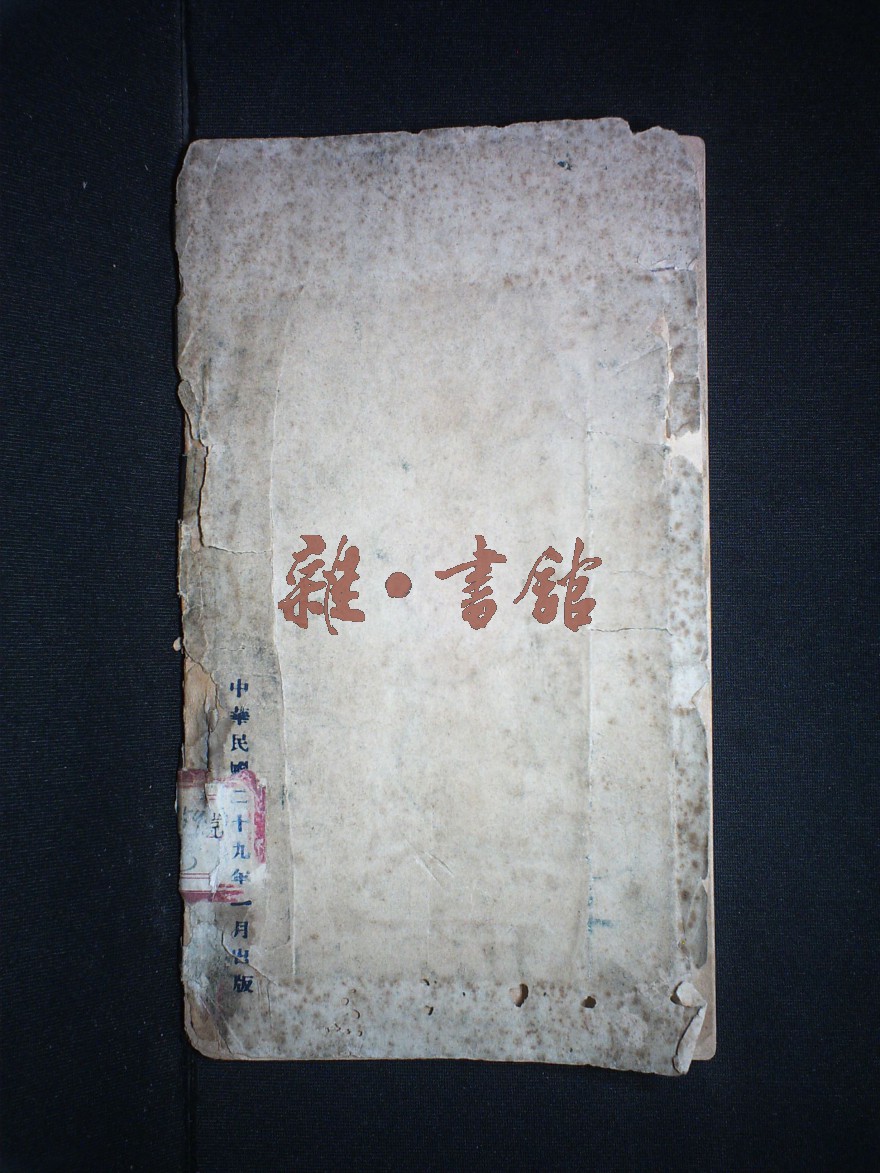 雜·書館
中華民國二十九年一月出版